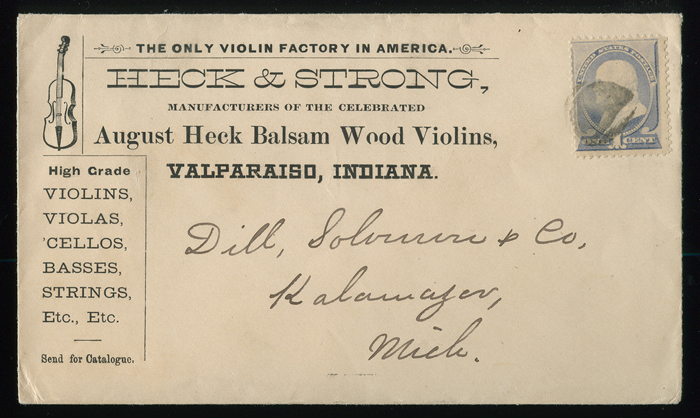 THE ONLY VIOLIN FACTORY IN AMERICA.
HECK & STRONG,
MANUFACTURERS OF THE CELEBRATED
August Heck Balsam Wood Violins,
VALPARAISO, INDIANA.
High Grade
VIOLINS,
VIOLAS,
'CELLOS,
BASSES,
STRINGS,
Etc., Etc.
Send for Catalogue.
UNITED STATES POSTAGE
ONE 1 CENT
Dill, Solomon & Co,
Kalamazoo,
Mich.